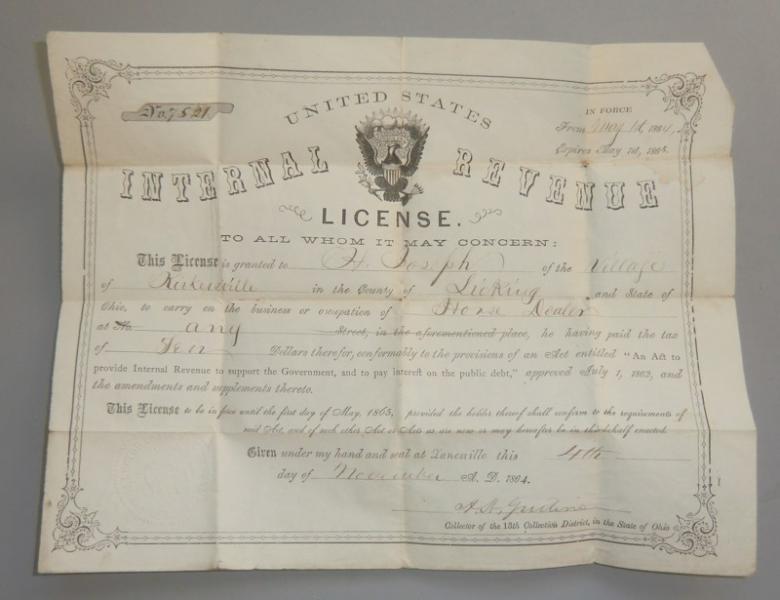 No. 7521
UNITED STATES
IN FORCE
From May 1st, 1864,
Expires May 1st, 1865.
INTERNAL REVENUE
LICENSE.
TO ALL WHOM IT MAY CONCERN:
This License is granted to H. Joseph of the Village
of Kirkersville in the County of Licking and State of
Ohio, to carry on the business or occupation of Horse Dealer
at No. any Street, in the aforementioned place, he having paid the tax
of Ten Dollars therefor, conformably to the provisions of an Act entitled "An Act to
provide Internal Revenue to support the Government, and to pay interest on the public debt," approved July 1, 1862, and
the amendments and supplements thereto.
This License to be in force until the first day of May, 1865, provided the holder thereof shall conform to the requirements of
said Act, and of such other Act or Acts as are now or may hereafter be in this behalf enacted.
Given under my hand and seal at Zanesville this 4th
day of November A. D. 1864.
Collector of the 13th Collection District, in the State of Ohio